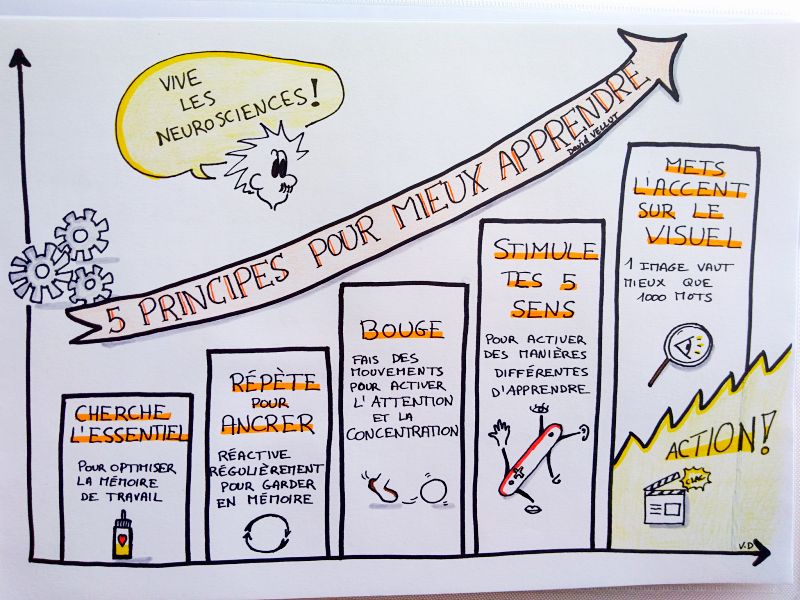 VIVE
LES
NEUROSCIENCES!
5 PRINCIPES POUR MIEUX APPRENDRE
David VELLUT
CHERCHE
L'ESSENTIEL
POUR OPTIMISER
LA MÉMOIRE
DE TRAVAIL
RÉPÈTE
POUR
ANCRER
RÉACTIVE
RÉGULIÈREMENT
POUR GARDER
EN MÉMOIRE
BOUGE
FAIS DES
MOUVEMENTS
POUR ACTIVER
L'ATTENTION
ET LA
CONCENTRATION
STIMULE
TES 5
SENS
POUR ACTIVER
DES MANIÈRES
DIFFÉRENTES
D'APPRENDRE
METS
L'ACCENT
SUR LE
VISUEL
1 IMAGE VAUT
MIEUX QUE
1000 MOTS
ACTION!
CLAC
V.D